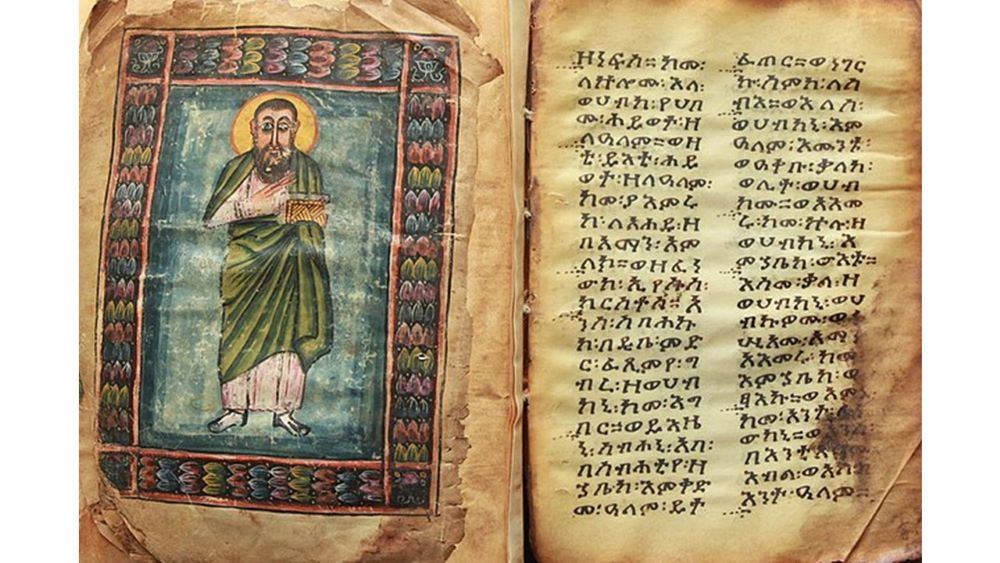 ዘነፍስ። ከመ፡
ለኵሎሙ፡ እለ፡
ወሀብከ፡ የሀበ
ሙ፡ ሕይወተ፡ ዘ
ለዓለም። ወዛ
ቲ፡ ይእቲ፡ ሕይ
ወት፡ ዘለዓለም፡
ከመ፡ ያእምሩ
ከ፡ ለአሐዱ
በአማን፡ አም
ላክ። ወዘፈነ
ውከ፡ ኢየሱስ፡
ክርስቶስ። አ
ንሰ፡ ሰባሕኩ
ከ፡ በዲበ፡ ምድ
ር፡ ፈጺምየ፡ ግ
ብረ፡ ዘወሀብ
ከኒ፡ ከመ፡ እግ
በር። ወይእዜ
ኒ፡ ሰብሐኒ፡ አባ፡
በስብሐቲየ፡ ዘ
ኀቤከ፡ እምቅድ
መ፡ ዓለም፡ ይት
ፈጠር። ወነገር
ኩ፡ ስምከ፡ ለሰ
ብእ። ወእለሰ፡
ወሀብከኒ፡ እም
ዓለም፡ እሙንቱ፡
ወዐቀቡ፡ ቃለከ፡
ወሊተ፡ ወሀብ
ከ። ወአእመ
ሩ፡ ከመ፡ ኵሉ፡ ዘ
ወሀብከኒ፡ እ
ምኀቤከ፡ ውእቱ።
እስመ፡ ቃለ፡ ዘ
ወሀብከኒ፡ ወሀ
ብክዎሙ፡
አእመሩ፡ ከመ
እምኀቤከ፡ ወ
ፃእኩ።
ከመ፡ አንተ፡ ፈነ
ውከኒ።
በእንቲአ
እንተ፡ ዓለም።